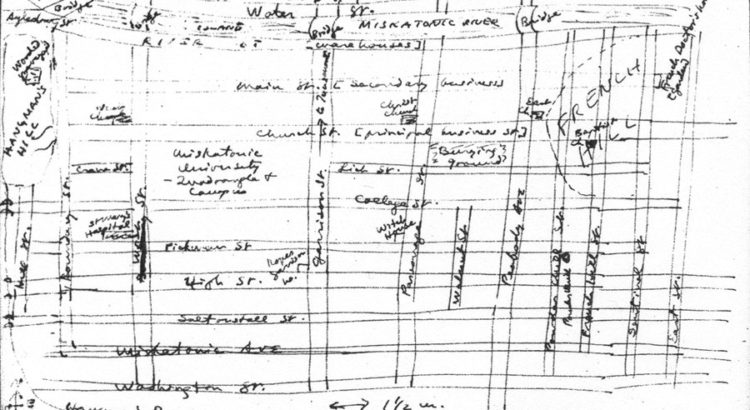 Water St.
MISKATONIC RIVER
Bridge
Bridge
Bridge
RIVER ST.
warehouses]
Main St. [secondary business
Christ
Church
East
Ch.
FRENCH
HILL
Baptist
Ch.
Church St. [principal business st.]
HANGMAN'S
HILL
Miskatonic
University
- Quadrangle &
Campus
Burying
ground
Lich St.
Crane St.
College St.
St. Mary's
Hospital
Witch
House
Pickman St
High St.
Saltonstall St.
Miskatonic Ave
Washington St.
Hill St.
Boundary St.
West St.
Garrison St.
Parsonage St.
Walnut St
Peabody Ave
Powder Mill St.
French Hill St.
Sentinel St
East St.
1 1/2 m.